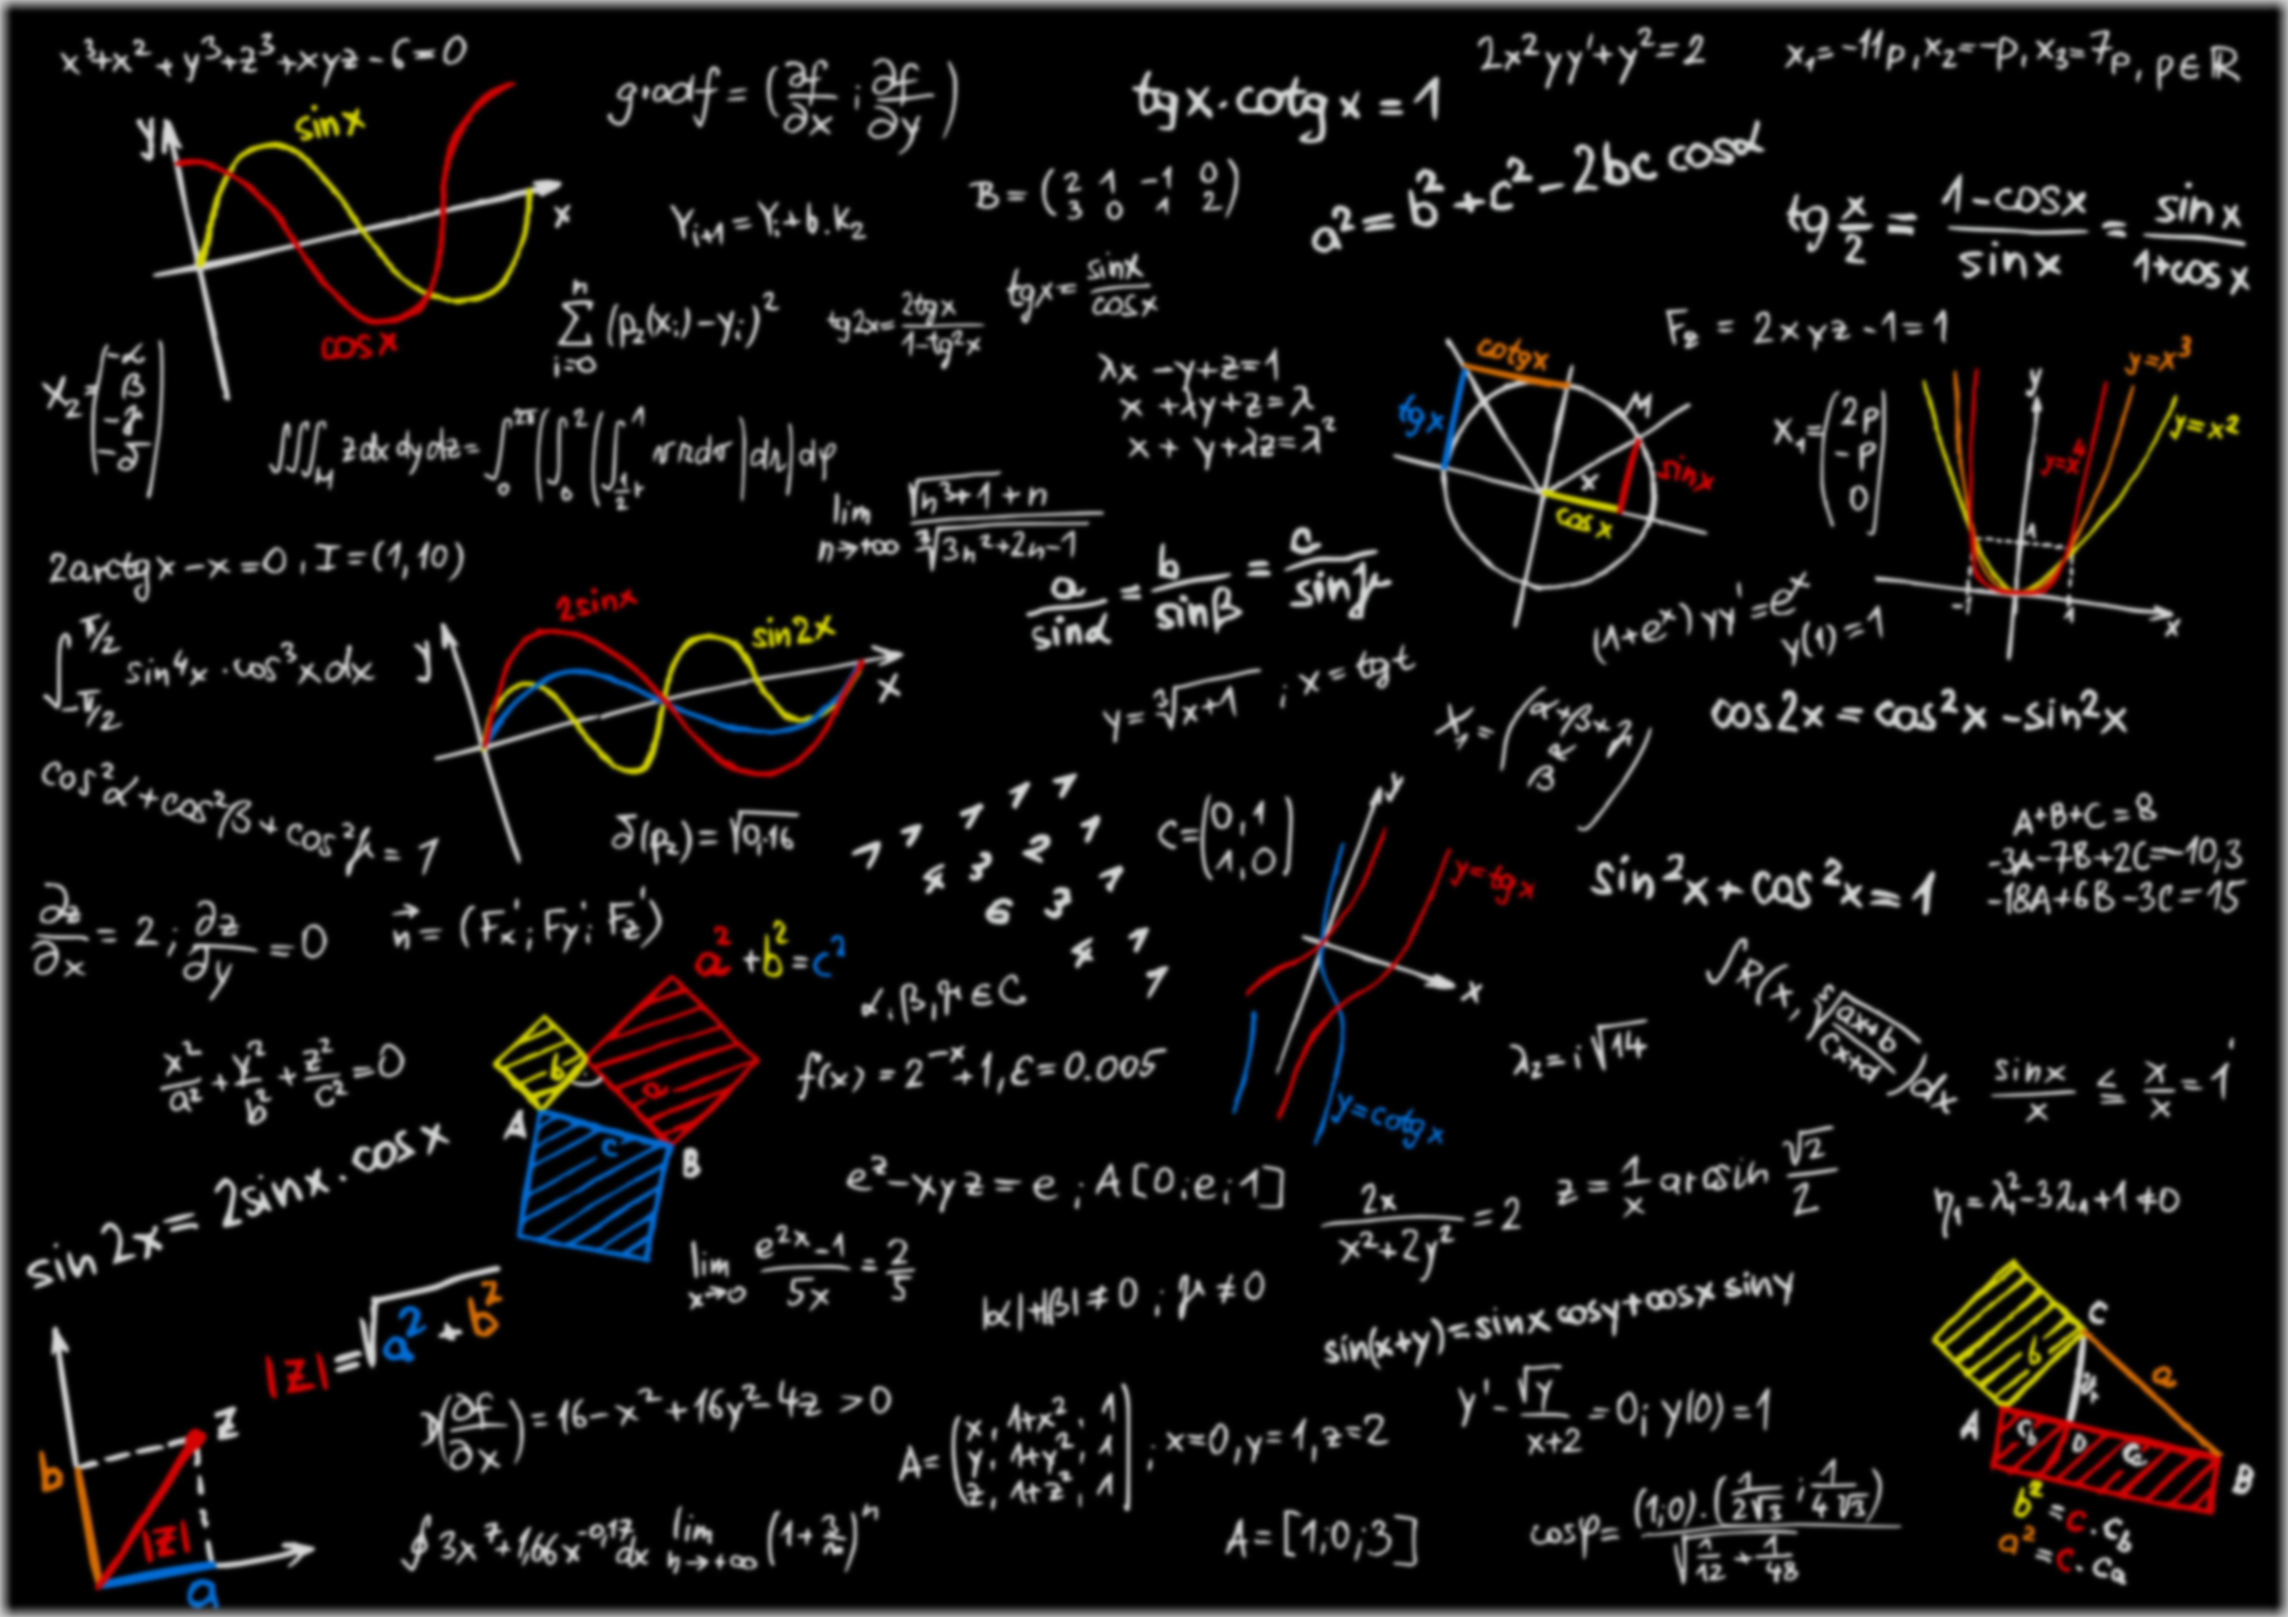 x³+x²+y³+z³+xyz-6=0
grad f = (∂f/∂x ; ∂f/∂y)
tg x · cotg x = 1
2x²yy'+y²=2
x₁=-11p, x₂=-p, x₃=7p, p∈R
y
sin x
x
cos x
Y_{i+1} = Y_i + b.k₂
B = (2 1 -1 0
3 0 1 2)
a² = b²+c²-2bc cosα
tg x/2 = (1-cos x)/sin x = sin x/(1+cos x)
Σ_{i=0}^{n} (p₂(x_i)-y_i)²
tg2x = 2tgx/(1-tg²x)
tgx = sinx/cosx
F_z = 2xyz-1=1
X₂ = (-α
β
-γ
-δ)
λx -y+z=1
x +λy+z=λ
x + y+λz=λ²
cotg x
tg x
M
x
sin x
cos x
X₁ = (2p
-p
0)
y
y=x³
y=x²
y=x⁴
1
-1
1
x
∭_M z dx dy dz = ∫_0^{2π} (∫_0^2 (∫_{½r}^1 v r dv) dr) dφ
lim_{n→+∞} (√(n³+1)+n)/∛(3n²+2n-1)
2arctgx-x=0, I=(1,10)
a/sinα = b/sinβ = c/sinγ
(1+eˣ)yy'=eˣ
y(1)=1
∫_{-π/2}^{π/2} sin⁴x·cos³x dx
y
2sinx
sin2x
x
y = ∛(x+1) ; x = tg t
X₁ = (α+β+γ
α
β)
cos2x = cos²x-sin²x
cos²α+cos²β+cos²γ=1
δ(p₂) = √0,16
1 1 1 1 1
4 3 2 1
6 3 1
4 1
1
C = (0,1
1,0)
y
y=tgx
x
y=cotgx
sin²x+cos²x=1
A+B+C=8
-3A-7B+2C=-10,3
-18A+6B-3C=15
∂z/∂x = 2 ; ∂z/∂y = 0
n⃗ = (Fx'; Fy'; Fz')
a²+b²=c²
b
a
c
A
B
α,β,γ∈C
∫R(x, ⁵√((ax+b)/(cx+d)))dx
x²/a² + y²/b² + z²/c² = 0
f(x) = 2⁻ˣ+1, ε=0.005
λ₂=i√14
sinx/x ≤ x/x = 1
sin2x = 2sinx·cosx
e^z-xyz=e ; A[0;e;1]
2x/(x²+2y²) = 2
z = 1/x arcsin √2/2
η₁=λ₁²-3λ₁+1≠0
lim_{x→0} (e^{2x}-1)/5x = 2/5
|α|+|β|≠0 ; γ≠0
sin(x+y)=sinx cosy+cosx siny
|z|=√(a²+b²)
z
b
|z|
a
D(∂f/∂x) = 16-x²+16y²-4z >0
A = (x, 1+x², 1
y, 1+y², 1
z, 1+z², 1) ; x=0, y=1, z=2
y' - √y/(x+2) = 0; y(0)=1
b
C
a
A
c_b
D
c_a
B
b² = c.c_b
a² = c.c_a
∮3x⁷+1,66x^{-0,17}dx
lim_{n→+∞} (1+3/n)ⁿ
A=[1;0;3]
cosφ = (1;0)·(1/(2√3) ; 1/(4√3)) / √(1/12+1/48)